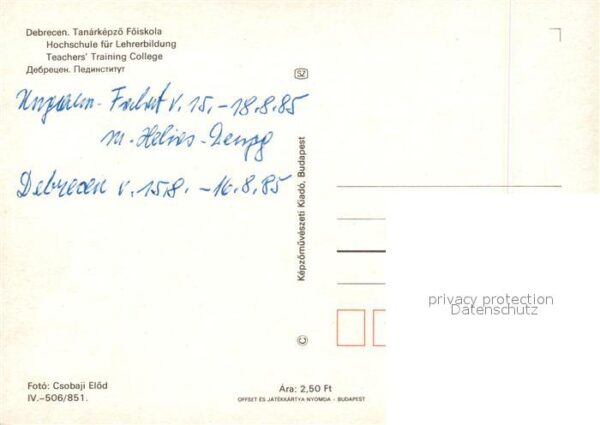 Debrecen. Tanárképző Főiskola
Hochschule für Lehrerbildung
Teachers' Training College
Дебрецен. Пединститут
Ungarn-Fahrt v. 15.-18.8.85
m. Helios-
Debrecen v. 15.8. - 16.8.85
SZ
Képzőművészeti Kiadó, Budapest
©
privacy protection
Datenschutz
Fotó: Csobaji Előd
IV.-506/851.
Ára: 2,50 Ft
OFFSET ÉS JÁTÉKKÁRTYA NYOMDA - BUDAPEST